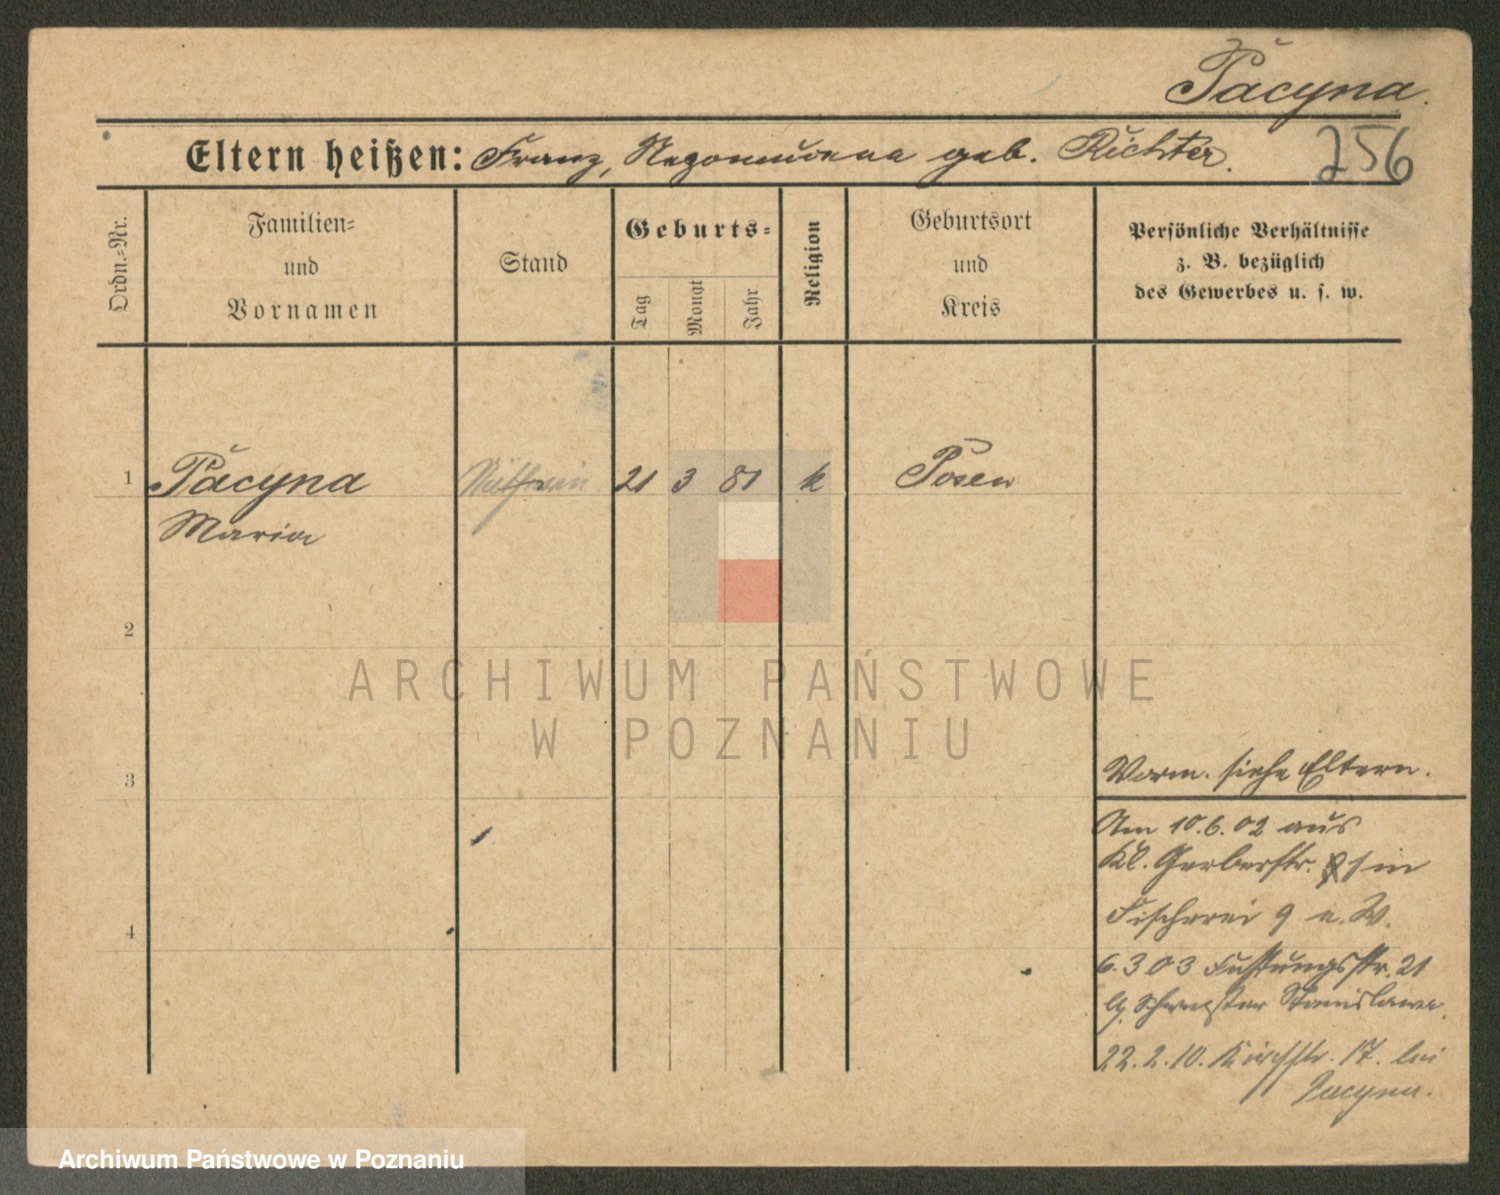 Pacyna.
Eltern heißen: Franz, Nepomucena geb. Richter.
256
Ordn.=Nr.
Familien=
und
Vornamen
Stand
Geburts=
Tag
Monat
Jahr
Religion
Geburtsort
und
Kreis
Persönliche Verhältnisse
z. B. bezüglich
des Gewerbes u. s. w.
1 Pacyna 21 3 81 k Posen
Maria
2
3
4
Vorm. siehe Eltern.
Am 10.6.02 aus
Kl. Gerberstr. in
Fischerei 9 a. W.
6.3 03 21
Schwester Stanislawa.
22.2.10. 17. bei
Pacyna.
ARCHIWUM PAŃSTWOWE
W POZNANIU
Archiwum Państwowe w Poznaniu